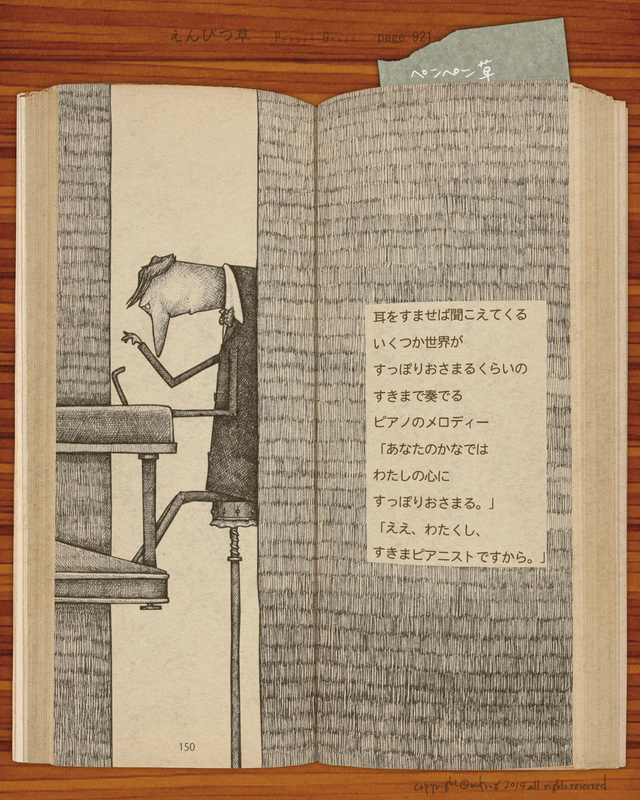 えんぴつ草 Pencil Grass page.921
ペンペン草
耳をすませば聞こえてくる
いくつか世界が
すっぽりおさまるくらいの
すきまで奏でる
ピアノのメロディー
「あなたのかなでは
わたしの心に
すっぽりおさまる。」
「ええ、わたくし、
すきまピアニストですから。」
150
copyright @ 2014 all rights reserved